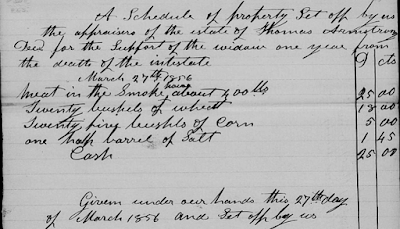 A Schedule of property Set off by us
the appraisers of the estate of Thomas Armstrong
Decd for the Support of the widow one year from
the death of the intestate D cts
March 27th 1856
meat in the Smoke house about 400 lbs 25 00
Twenty bushels of wheat 18 00
Twenty five bushels of Corn 5 00
one half barrel of Salt 1 45
Cash 25 00
Given under our hands this 27th day
of March 1856 and Set off by us